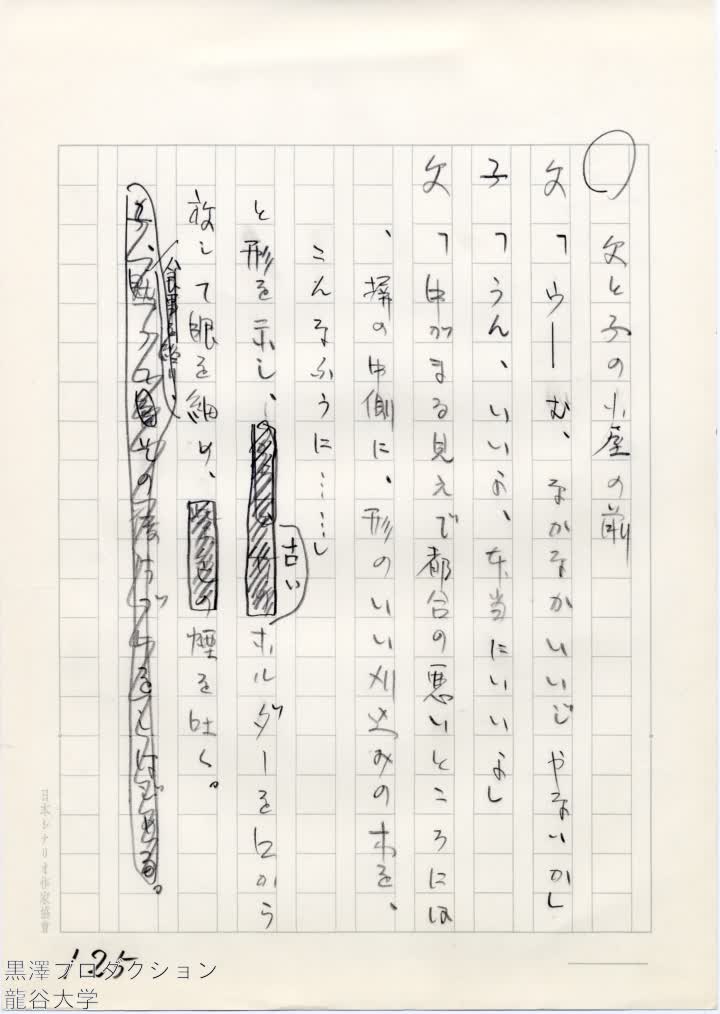 ○ 父と子の小屋の前
父「ウーむ、なかなかいいじゃないか」
子「うん、いいよ、本当にいいよ」
父「中がまる見えで都合の悪いところには
、塀の中側に、形のいい刈込みの木を、
こんなふうに……」
と形を示し、
古い
ホルダーを口から
放して眼を細め、
煙を吐く。
食事を終り、
日本シナリオ作家協會
125
黒澤プロダクション
龍谷大学